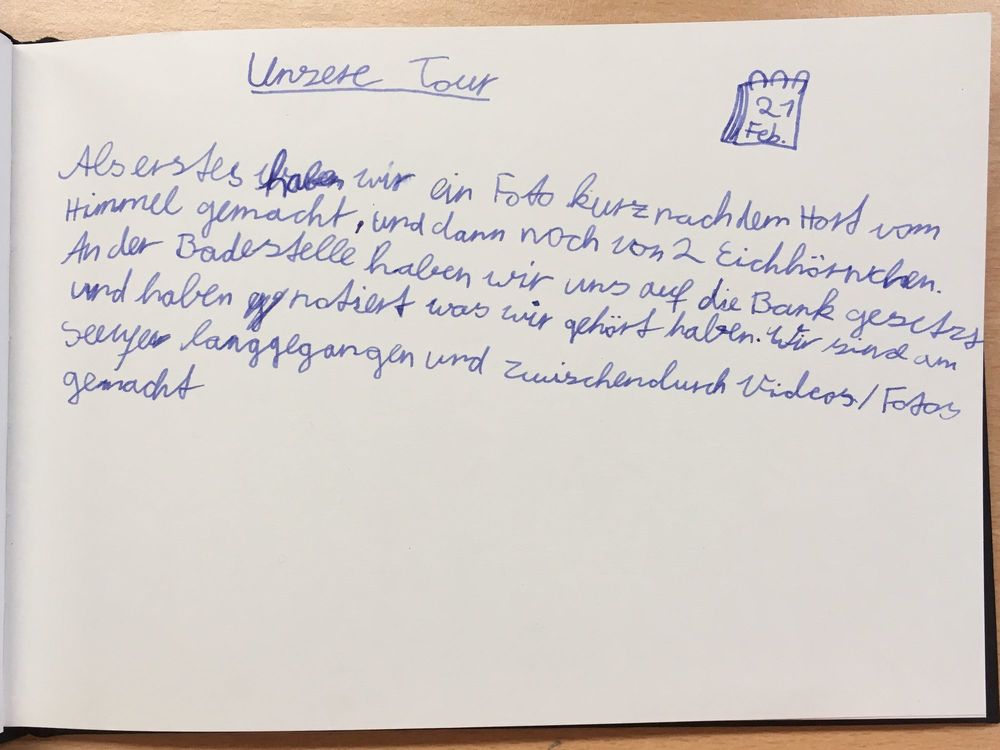 Unsere Tour
21
Feb.
Als erstes haben wir ein Foto kurz nach dem Hort vom
Himmel gemacht, und dann noch von 2 Eichhörnchen.
An der Badestelle haben wir uns auf die Bank gesetzt
und haben notiert was wir gehört haben. Wir sind am
langgegangen und zwischendurch Videos/Fotos
gemacht